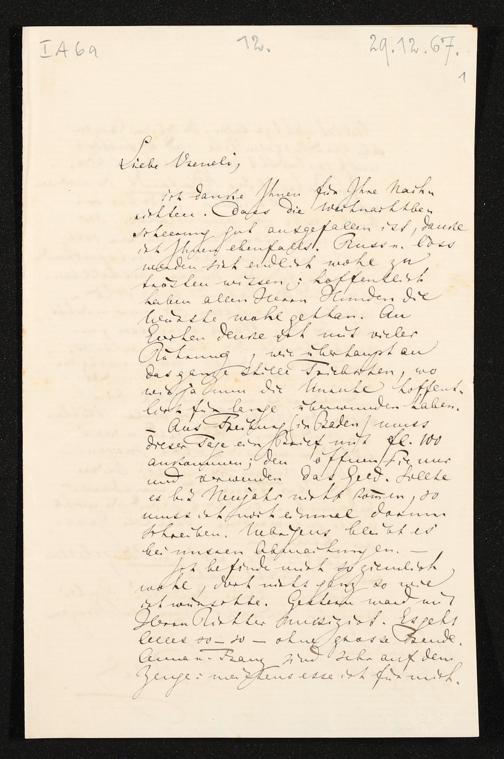 I A 6a 12. 29.12.67.
1
Liebe Vreneli,
ich danke Ihnen für Ihre Nach-
richten. Dass die Weihnachtbe-
scheerung gut ausgefallen ist, danke
ich Ihnen ebenfalls. Russ u. Coss
werden sich endlich wohl zu
trösten wissen; hoffentlich
haben allen Herrn Hunden die
Würste wohlgethan. An
denke ich mit vieler
Rührung, wie überhaupt an
das ganze stille Triebschen, wo
wir ja nun die Unruhe hoffent-
lich für lange überwunden haben.
Aus Freiburg (in Baden) muss
dieser Tage ein Brief mit fl. 100
ankommen; den öffnen Sie nur
und verwenden das Geld. Sollte
es bis Neujahr nicht kommen, so
muss ich noch einmal darum
schreiben. Uebrigens bleibt es
bei unsren Abmachungen. —
Ich befinde mich so ziemlich
wohl, doch nicht ganz so wie
ich wünschte. Gestern ward mit
Herrn Richter musizirt. Es geht
Alles so – so – ohne grosse Freude.
Anna u. Franz sind sehr auf dem
Zeuge: meistens esse ich für mich.